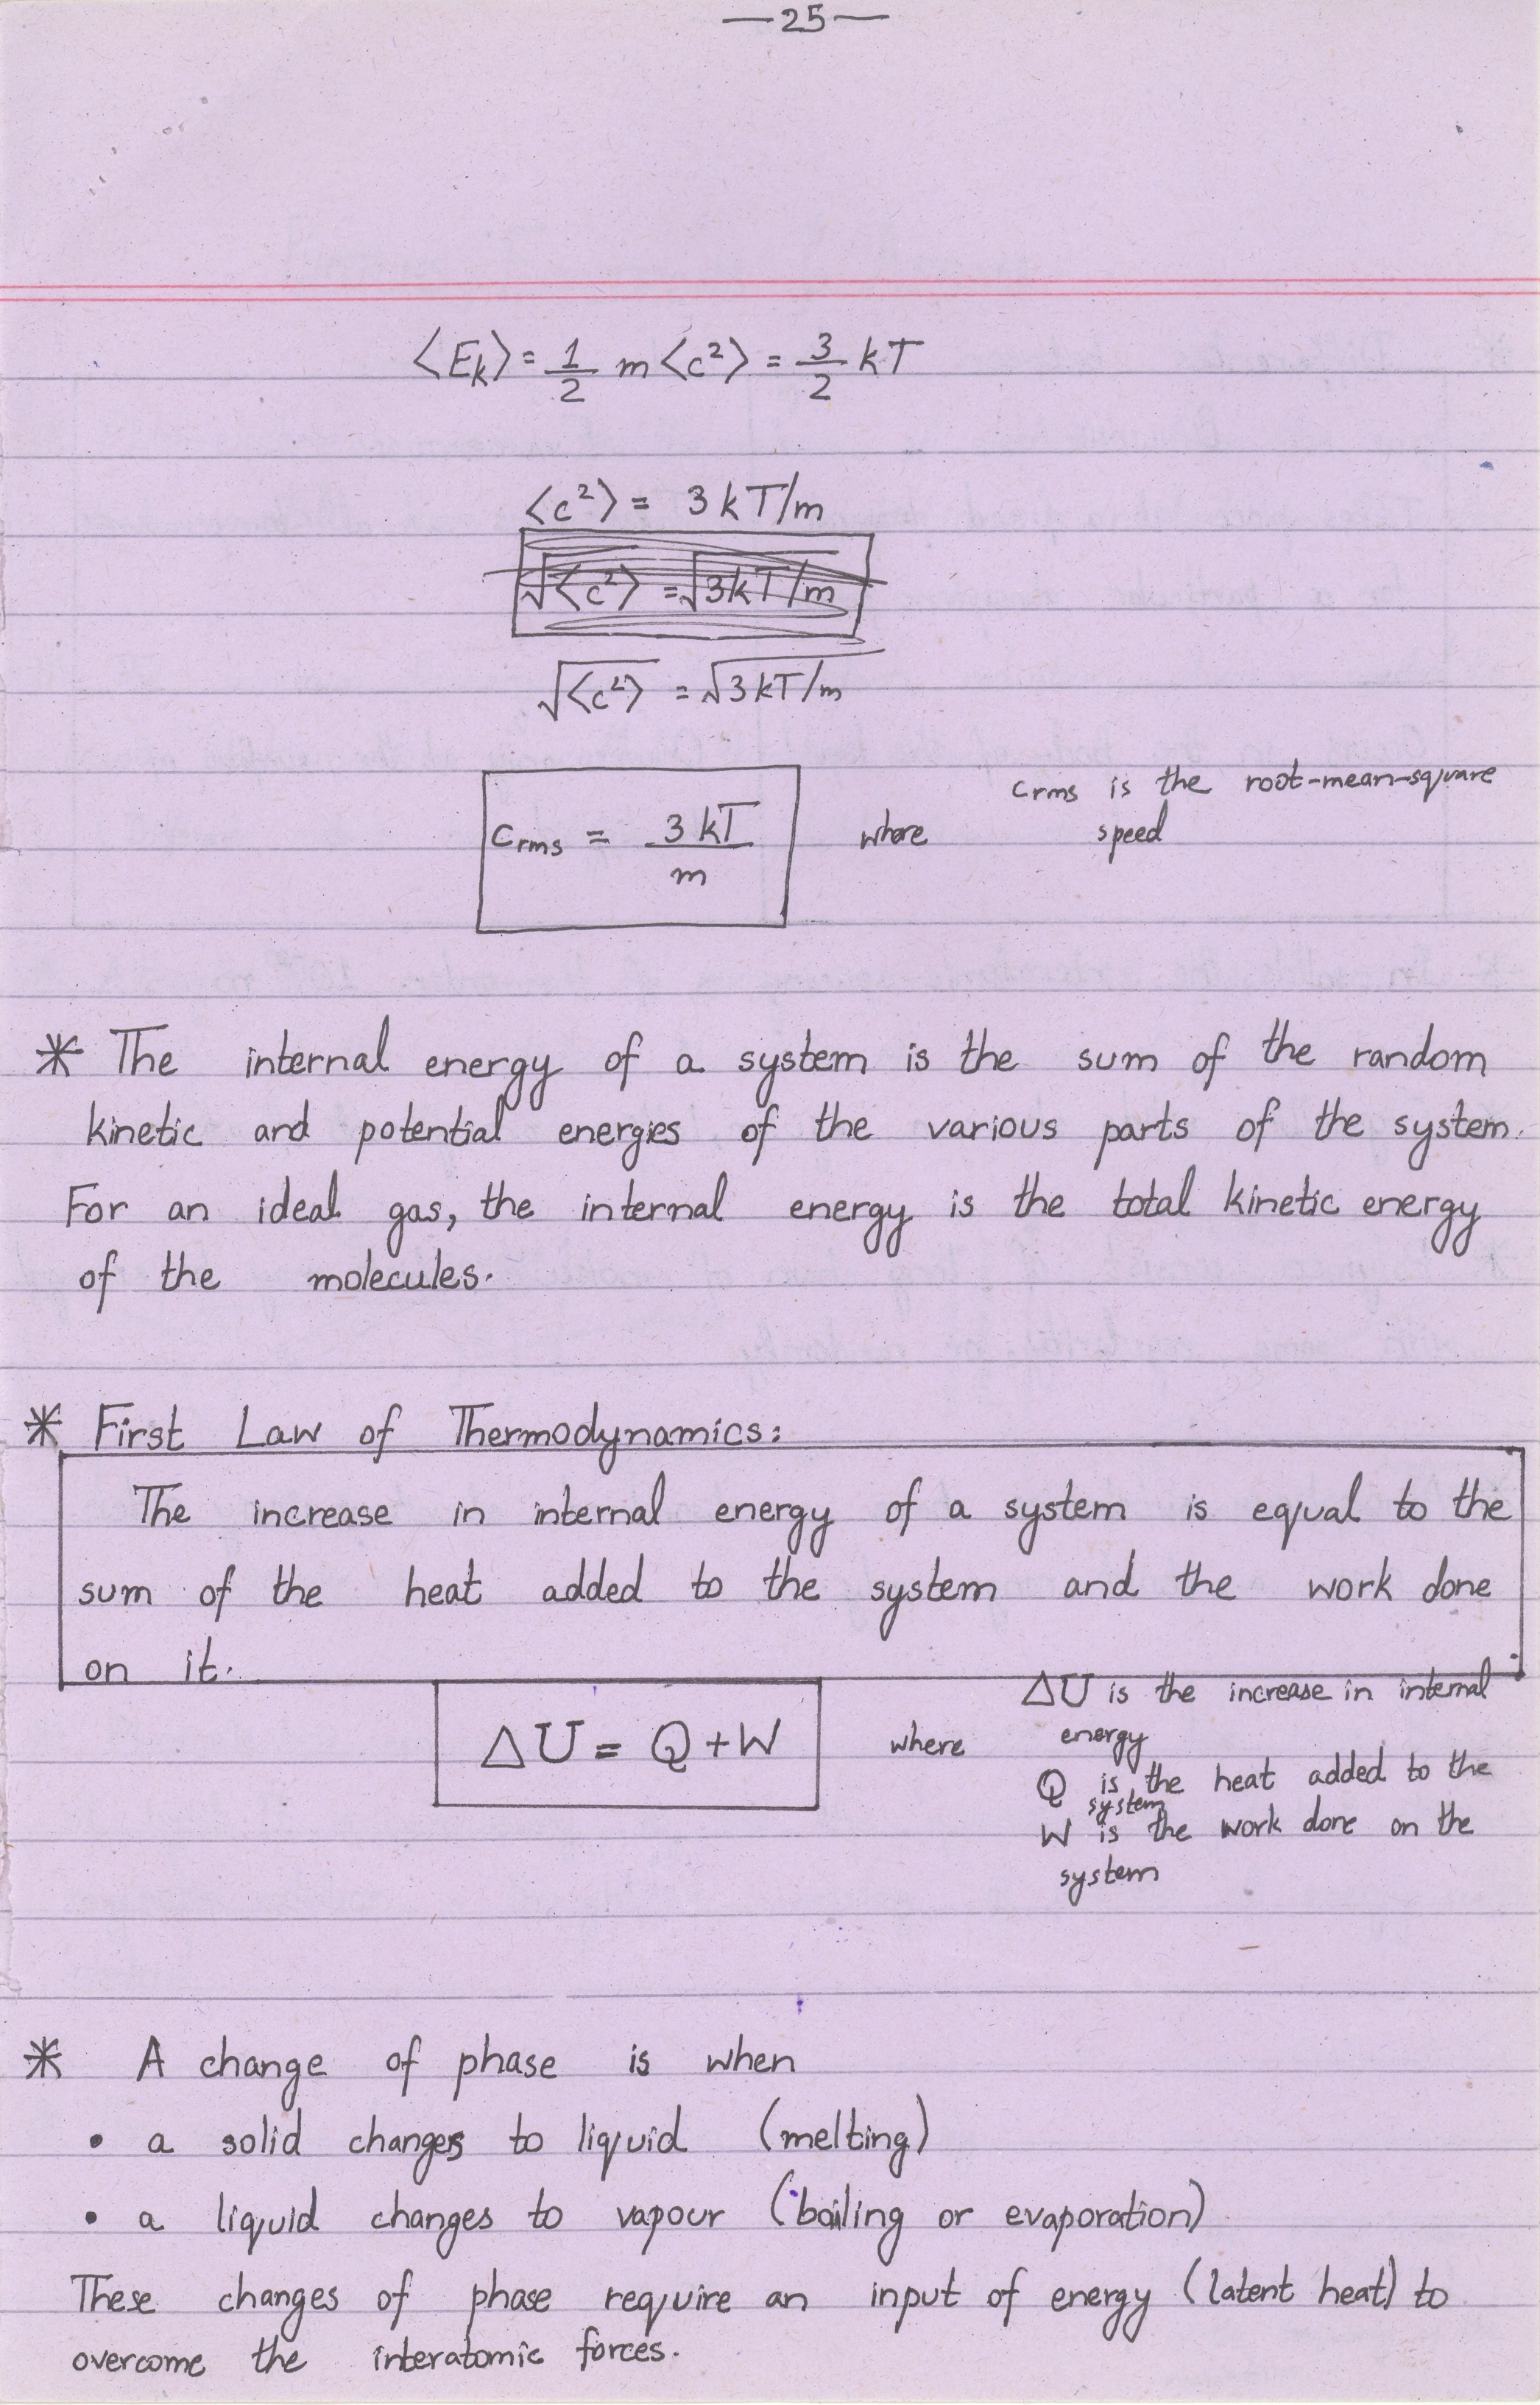 —25—
⟨Ek⟩ = 1/2 m⟨c²⟩ = 3/2 kT
⟨c²⟩ = 3kT/m
√⟨c²⟩ = √3kT/m
√⟨c²⟩ = √3kT/m
crms = 3kT/m where crms is the root-mean-square
speed
* The internal energy of a system is the sum of the random
kinetic and potential energies of the various parts of the system.
For an ideal gas, the internal energy is the total kinetic energy
of the molecules.
* First Law of Thermodynamics:
The increase in internal energy of a system is equal to the
sum of the heat added to the system and the work done
on it.
ΔU = Q + W where ΔU is the increase in internal
energy
Q is the heat added to the
system
W is the work done on the
system
* A change of phase is when
• a solid changes to liquid (melting)
• a liquid changes to vapour (boiling or evaporation)
These changes of phase require an input of energy (latent heat) to
overcome the interatomic forces.